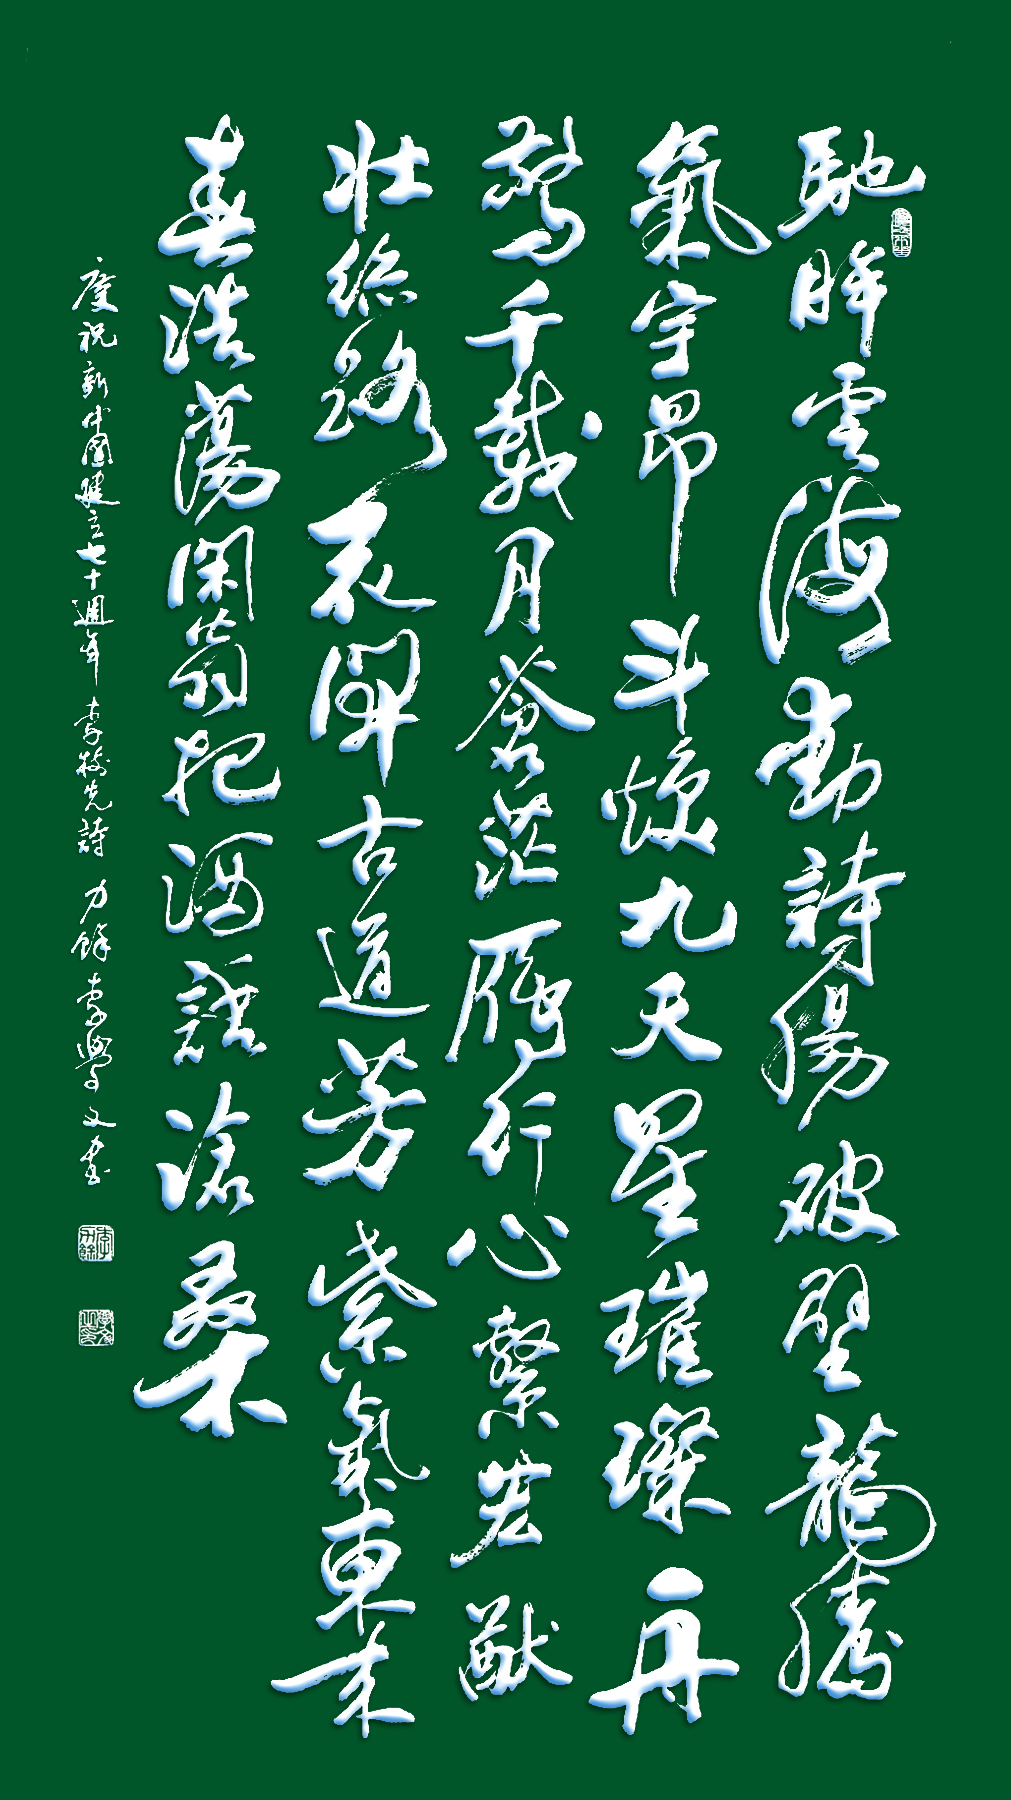 馳眸雲海動詩腸破壁龍騰
氣宇昂斗煥九天星璀璨舟
驚千載月蒼茫雁行心繫宏猷
壯絲路開古道芳紫氣東來
春浩蕩閑翁把酒話滄桑
慶祝新中國建立七十週年 李樹先詩 力餘李學文書